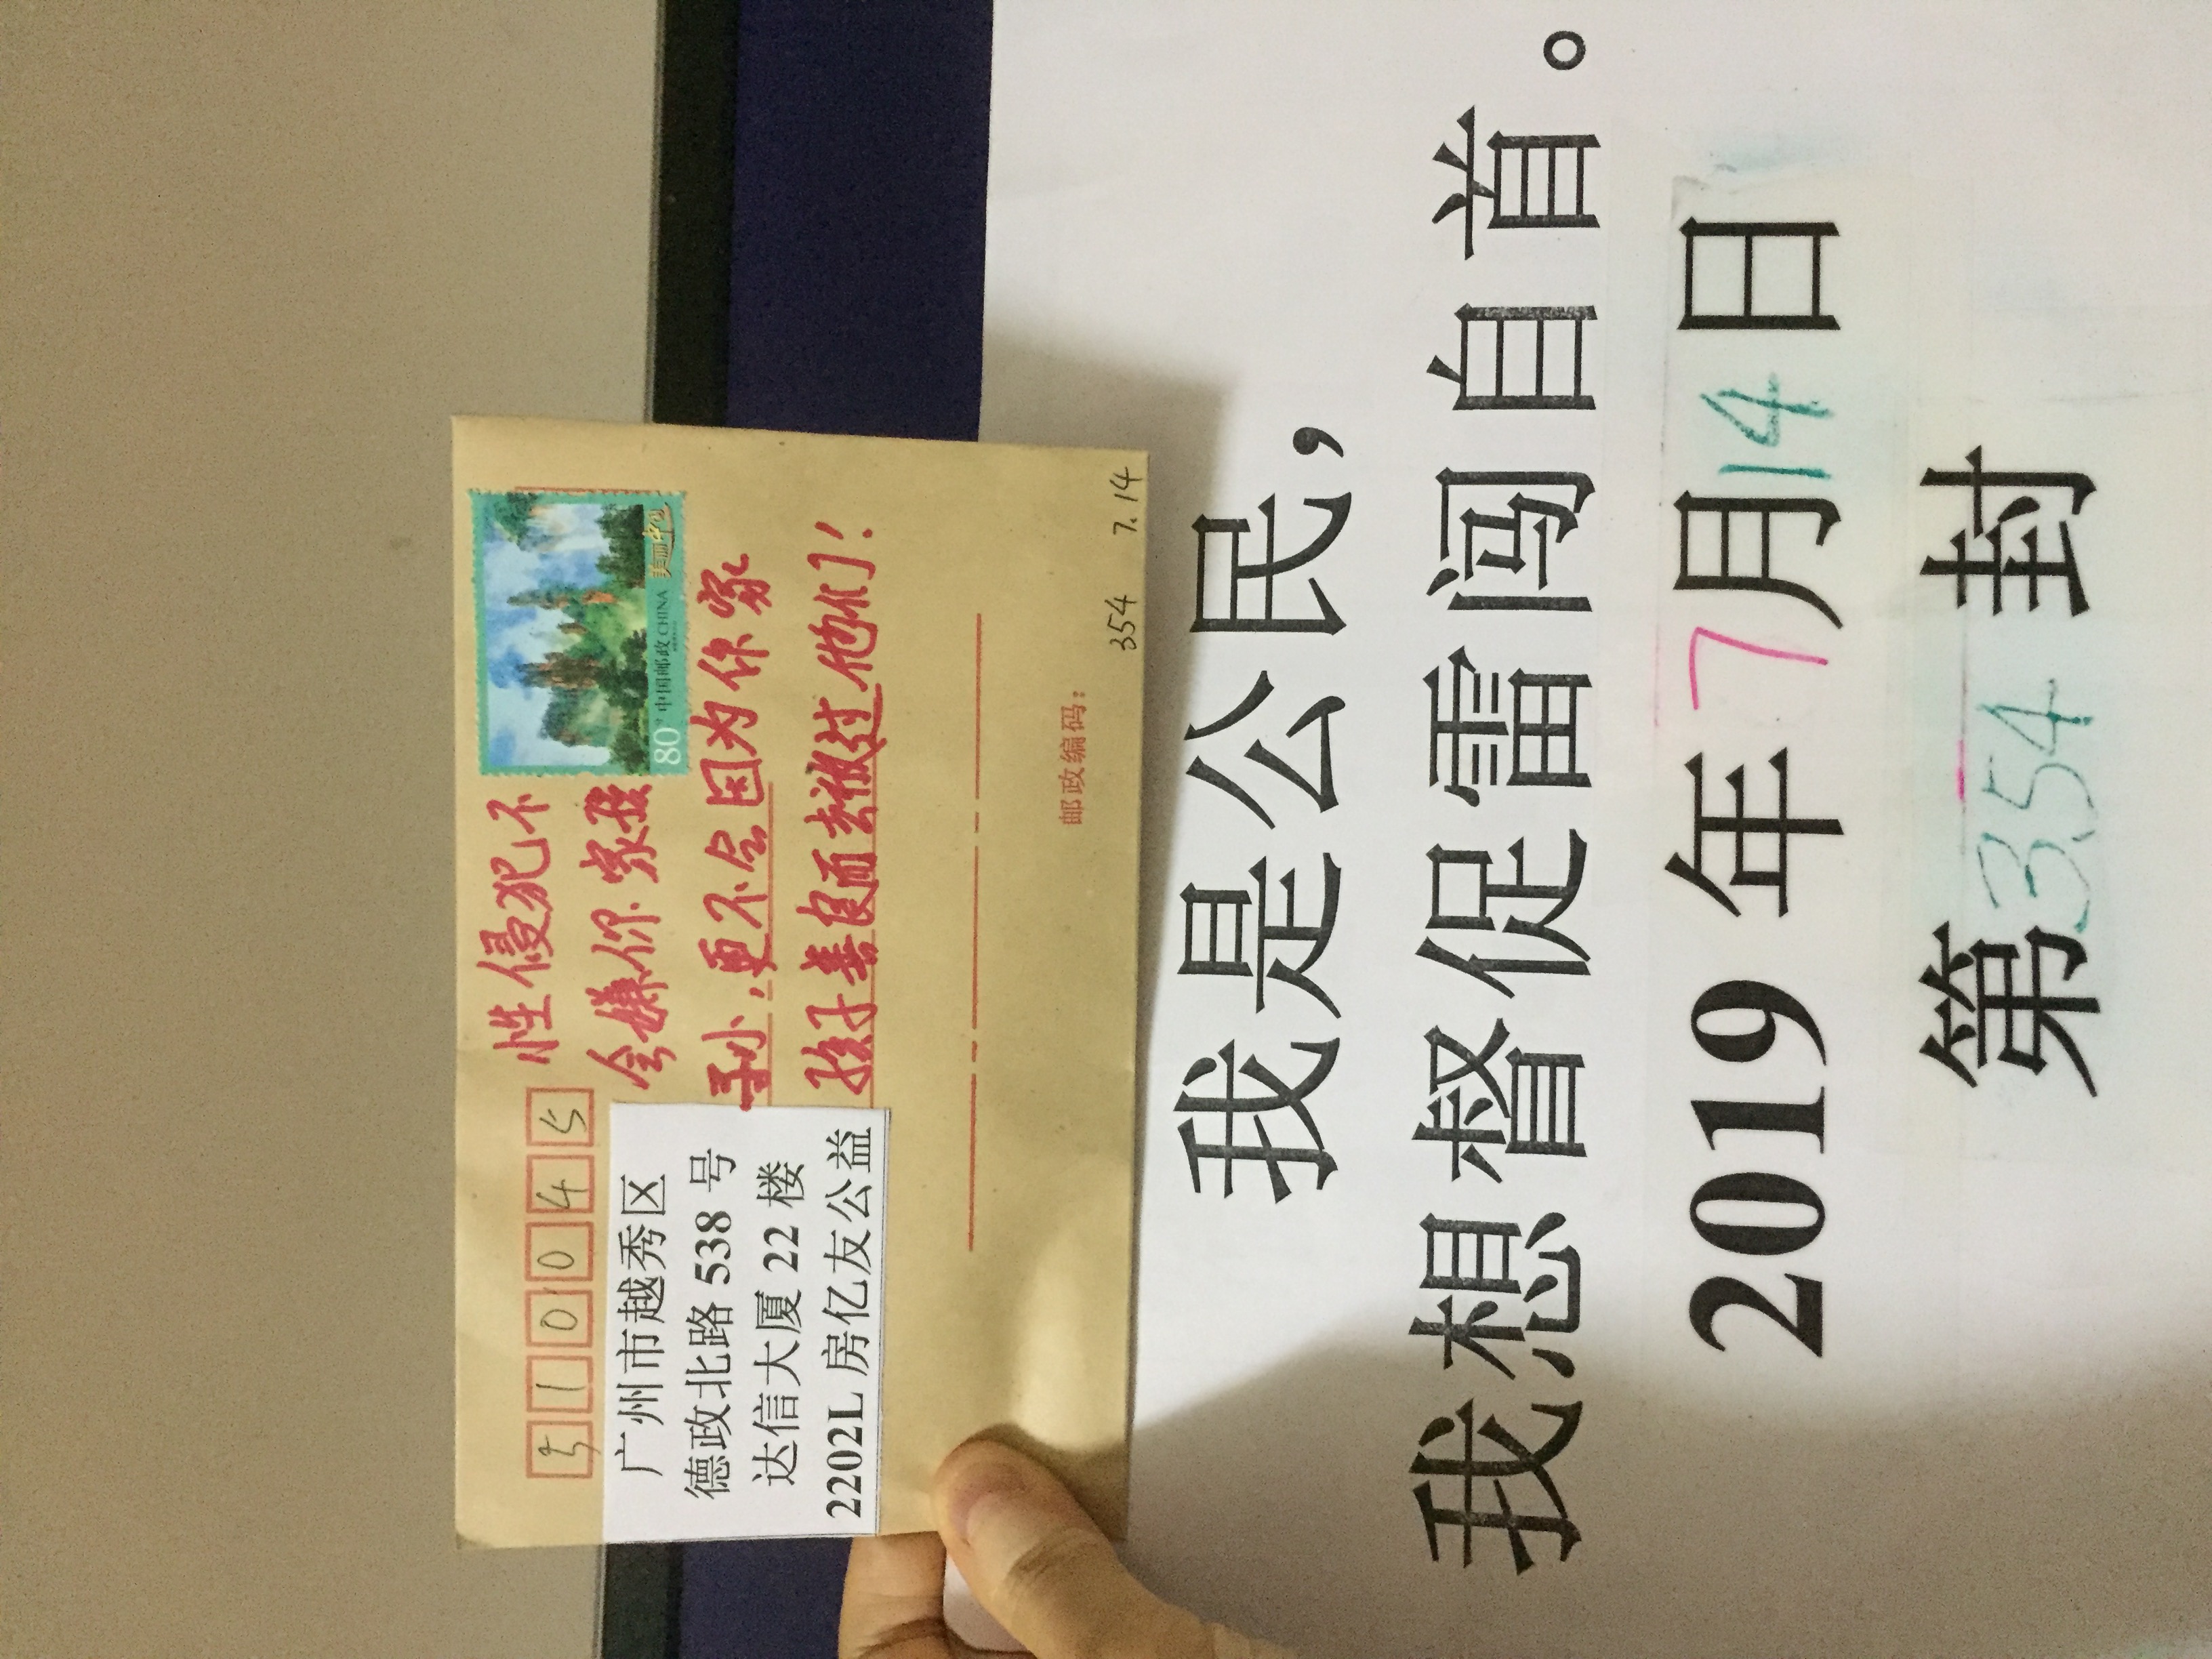 510045
广州市越秀区
德政北路 538 号
达信大厦 22 楼
2202L 房亿友公益
性侵犯不
会嫌你家孩
子小，更不会因为你家
孩子善良而去放过他们！
80 中国邮政 CHINA 美丽中国
邮政编码：
354 7.14
我是公民，
我想督促雷闯自首。
2019 年 7 月 14 日
第 354 封